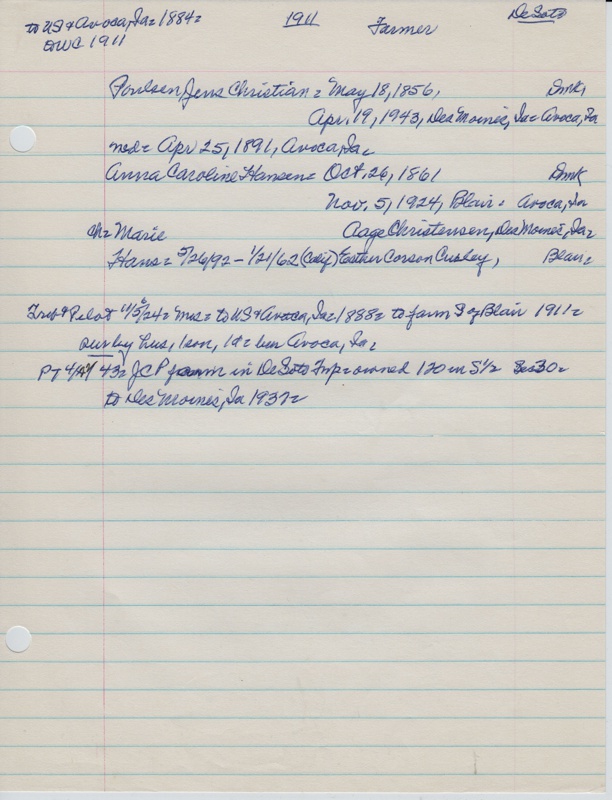 to US & Avoca, Ia = 1884 = 1911 Farmer DeSoto
DWC 1911
Poulsen, Jens Christian = May 18, 1856, Dmk,
Apr. 19, 1943, Des Moines, Ia = Avoca, Ia
md = Apr 25, 1891, Avoca, Ia =
Anna Caroline Hansen = Oct. 26, 1861 Dmk
Nov. 5, 1924, Blair = Avoca, Ia
Ch = Marie Aage Christensen, Des Moines, Ia =
Hans = 5/26/92 - 1/21/62 (Calif) Esther Corson Cusley, Blair =
Trib & Pilot 11/5/24 = Mrs = to US & Avoca, Ia = 1888 = to farm S of Blair 1911 =
sur by hus, 1 son, 1 d = bur Avoca, Ia,
PT 4/ 43 = JCP farm in DeSoto Twp = owned 120 in S 1/2 30 =
to Des Moines, Ia 1937 =